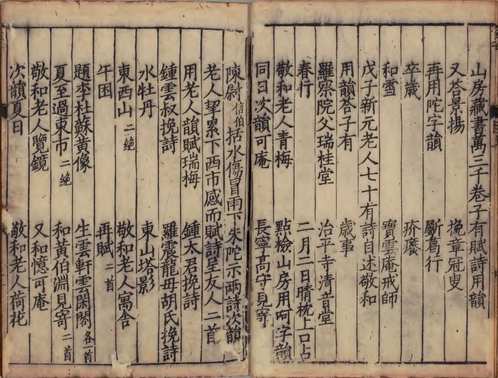 山房藏書萬三千卷子有賦詩用韻
又答景揚　挽章冠叟
再用陀字韻　斷蒭行
卒歲　疥癢
和雪　寶雲庵戒師
戊子新元老人七十有詩自述敬和
用韻答子有　歲事
羅察院父瑞桂堂　治平寺清音堂
春行　二月二日晴枕上口占
敬和老人青梅　點檢山房用呵字韻
同日次韻可庵　長寧高守見寄
陳尉　括水傷冒雨下朱陀示兩詩次韻
老人挈累下西市感而賦詩呈友人二首
用老人韻賦瑞梅　鍾太君挽詩
鍾雲叔挽詩　羅震龍母胡氏挽詩
水牡丹　東山塔影
東西山二絕　敬和老人寓舍
午困　再賦二首
題李杜蘇黃像　生雲軒雲閑閣各一首
夏至過東市二絕　和黃伯淵見寄二首
敬和老人覽鏡　又和憶可庵
次韻夏日　敬和老人荷花